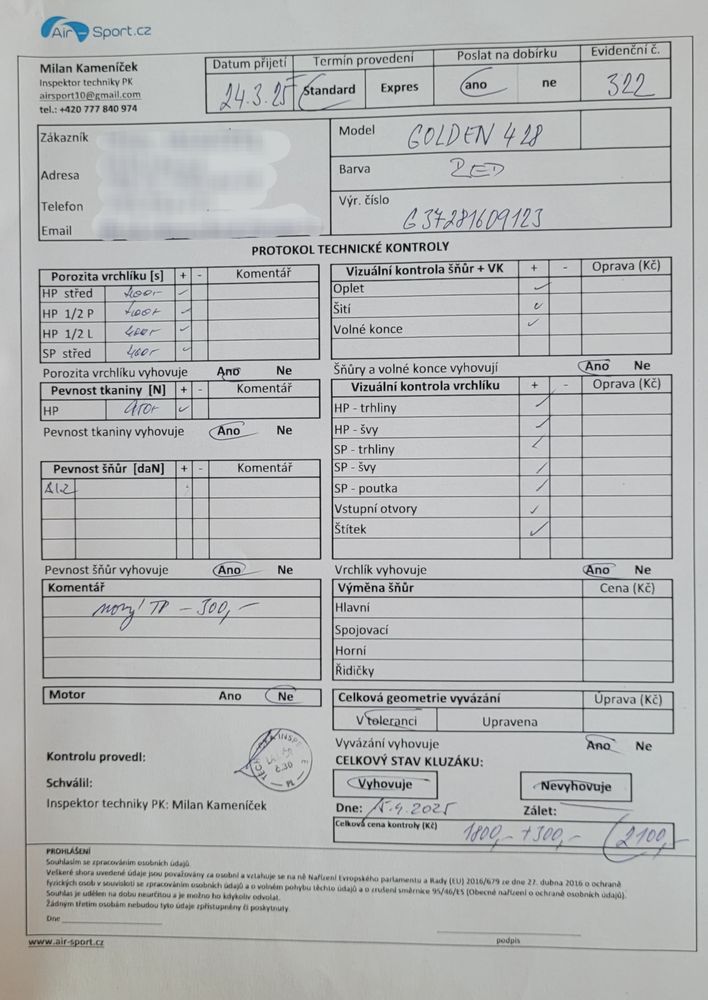 Air-Sport.cz
Milan Kameníček
Inspektor techniky PK
airsport10@gmail.com
tel.: +420 777 840 974
Datum přijetí Termín provedení Poslat na dobírku Evidenční č.
24.3.25 Standard Expres ano ne 322
Zákazník
Adresa
Telefon
Email
Model GOLDEN 428
Barva RED
Výr. číslo G37281609123
PROTOKOL TECHNICKÉ KONTROLY
Porozita vrchlíku [s] + - Komentář
HP střed 400+
HP 1/2 P 400+
HP 1/2 L 400+
SP střed 400+
Porozita vrchlíku vyhovuje Ano Ne
Pevnost tkaniny [N] + - Komentář
HP
Pevnost tkaniny vyhovuje Ano Ne
Pevnost šňůr [daN] + - Komentář
Pevnost šňůr vyhovuje Ano Ne
Komentář
nový TP - 300,-
Motor Ano Ne
Vizuální kontrola šňůr + VK + - Oprava (Kč)
Oplet
Šití
Volné konce
Šňůry a volné konce vyhovují Ano Ne
Vizuální kontrola vrchlíku + - Oprava (Kč)
HP - trhliny
HP - švy
SP - trhliny
SP - švy
SP - poutka
Vstupní otvory
Štítek
Vrchlík vyhovuje Ano Ne
Výměna šňůr Cena (Kč)
Hlavní
Spojovací
Horní
Řidičky
Celková geometrie vyvázání Úprava (Kč)
V toleranci Upravena
Vyvázání vyhovuje Ano Ne
CELKOVÝ STAV KLUZÁKU:
Vyhovuje Nevyhovuje
Dne: 15.4.2025 Zálet:
Celková cena kontroly (Kč) 1800,- +300,- 2100,-
Kontrolu provedl:
Schválil:
Inspektor techniky PK: Milan Kameníček
PROHLÁŠENÍ
Souhlasím se zpracováním osobních údajů.
Veškeré shora uvedené údaje jsou považovány za osobní a vztahuje se na ně Nařízení Evropského parlamentu a Rady (EU) 2016/679 ze dne 27. dubna 2016 o ochraně
fyzických osob v souvislosti se zpracováním osobních údajů a o volném pohybu těchto údajů a o zrušení směrnice 95/46/ES (Obecné nařízení o ochraně osobních údajů).
Souhlas je udělen na dobu neurčitou a je možno ho kdykoliv odvolat.
Žádným třetím osobám nebudou tyto údaje zpřístupněny či poskytnuty.
Dne
podpis
www.air-sport.cz